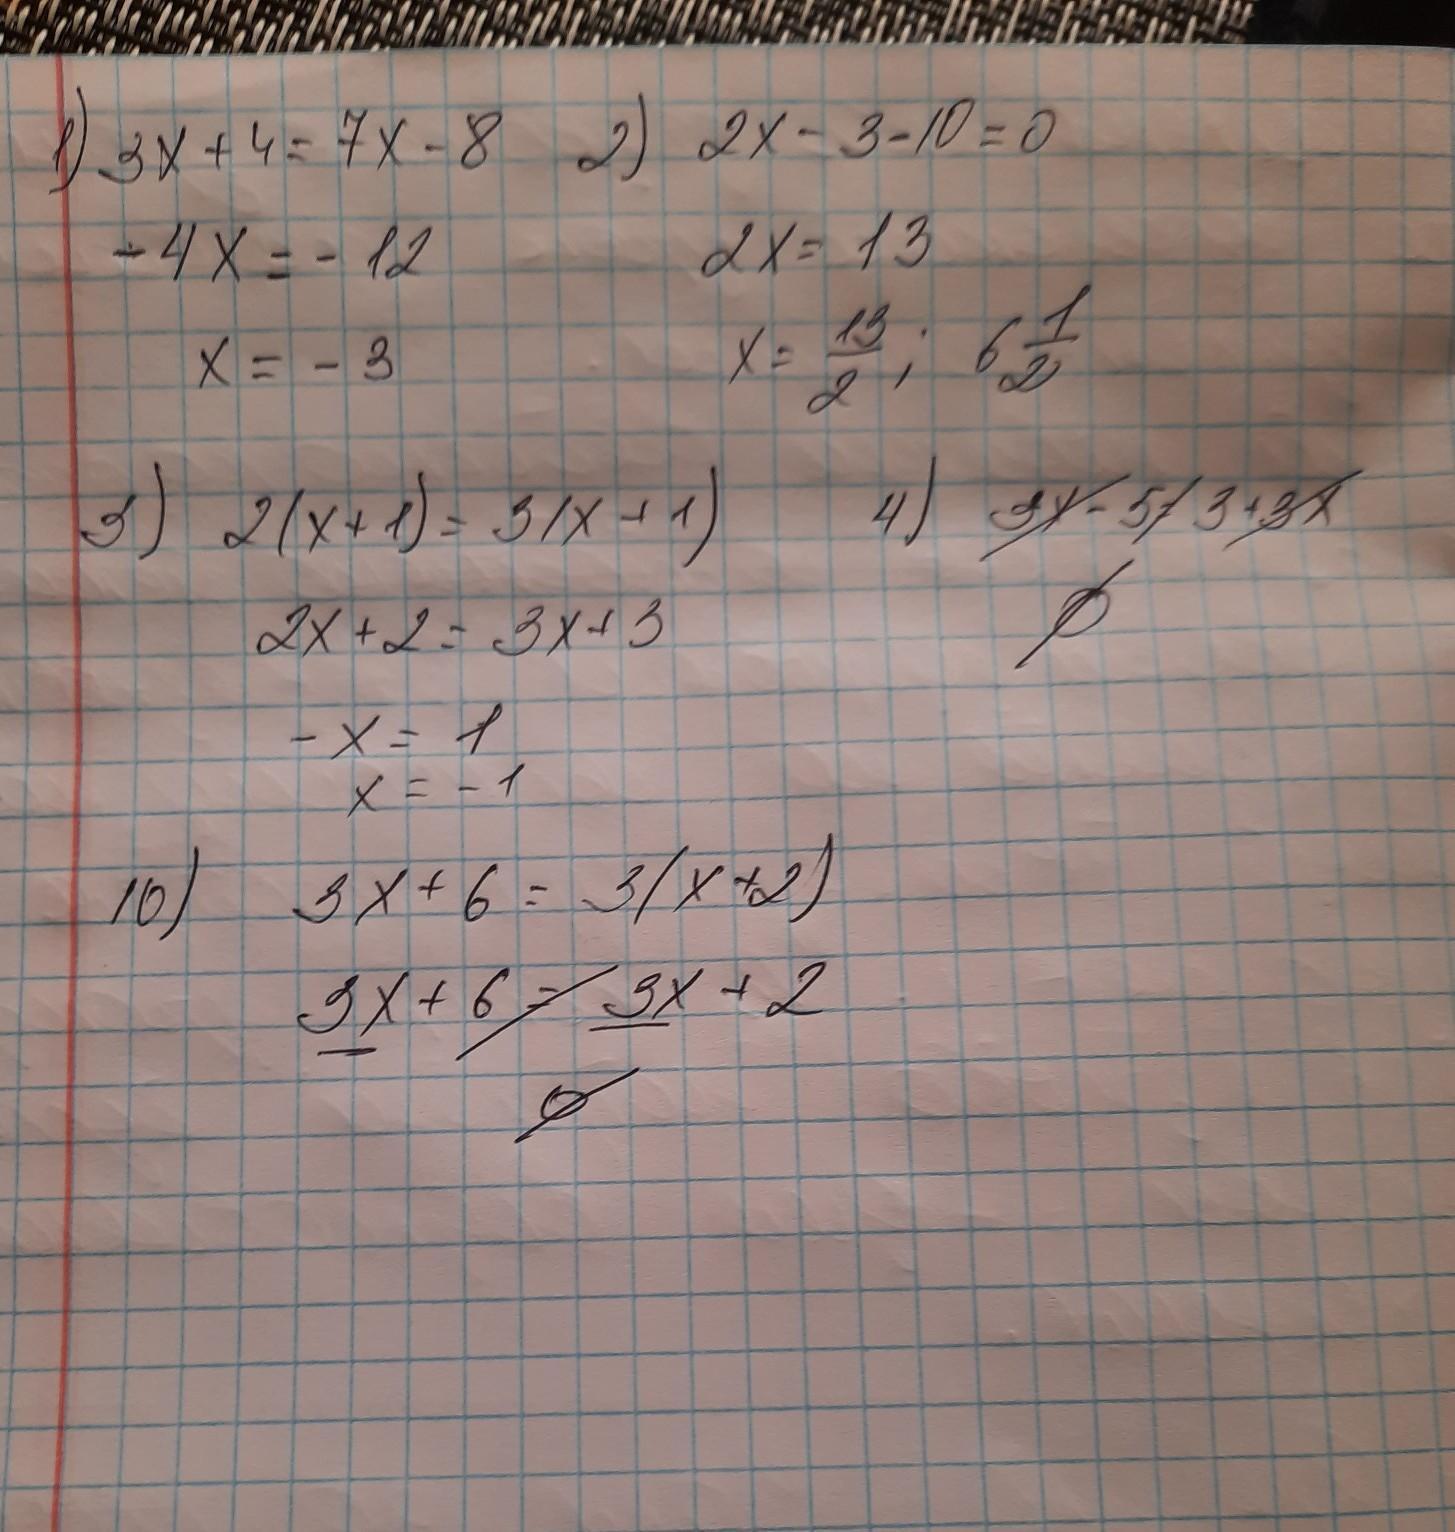 1) 3x + 4 = 7x - 8
-4x = -12
x = -3
2) 2x - 3 - 10 = 0
2x = 13
x = 13/2 ; 6 1/2
3) 2(x + 1) = 3(x + 1)
2x + 2 = 3x + 3
-x = 1
x = -1
4) 3x - 5 ≠ 3 + 3x
∅
10) 3x + 6 = 3(x + 2)
3x + 6 ≠ 3x + 2
∅